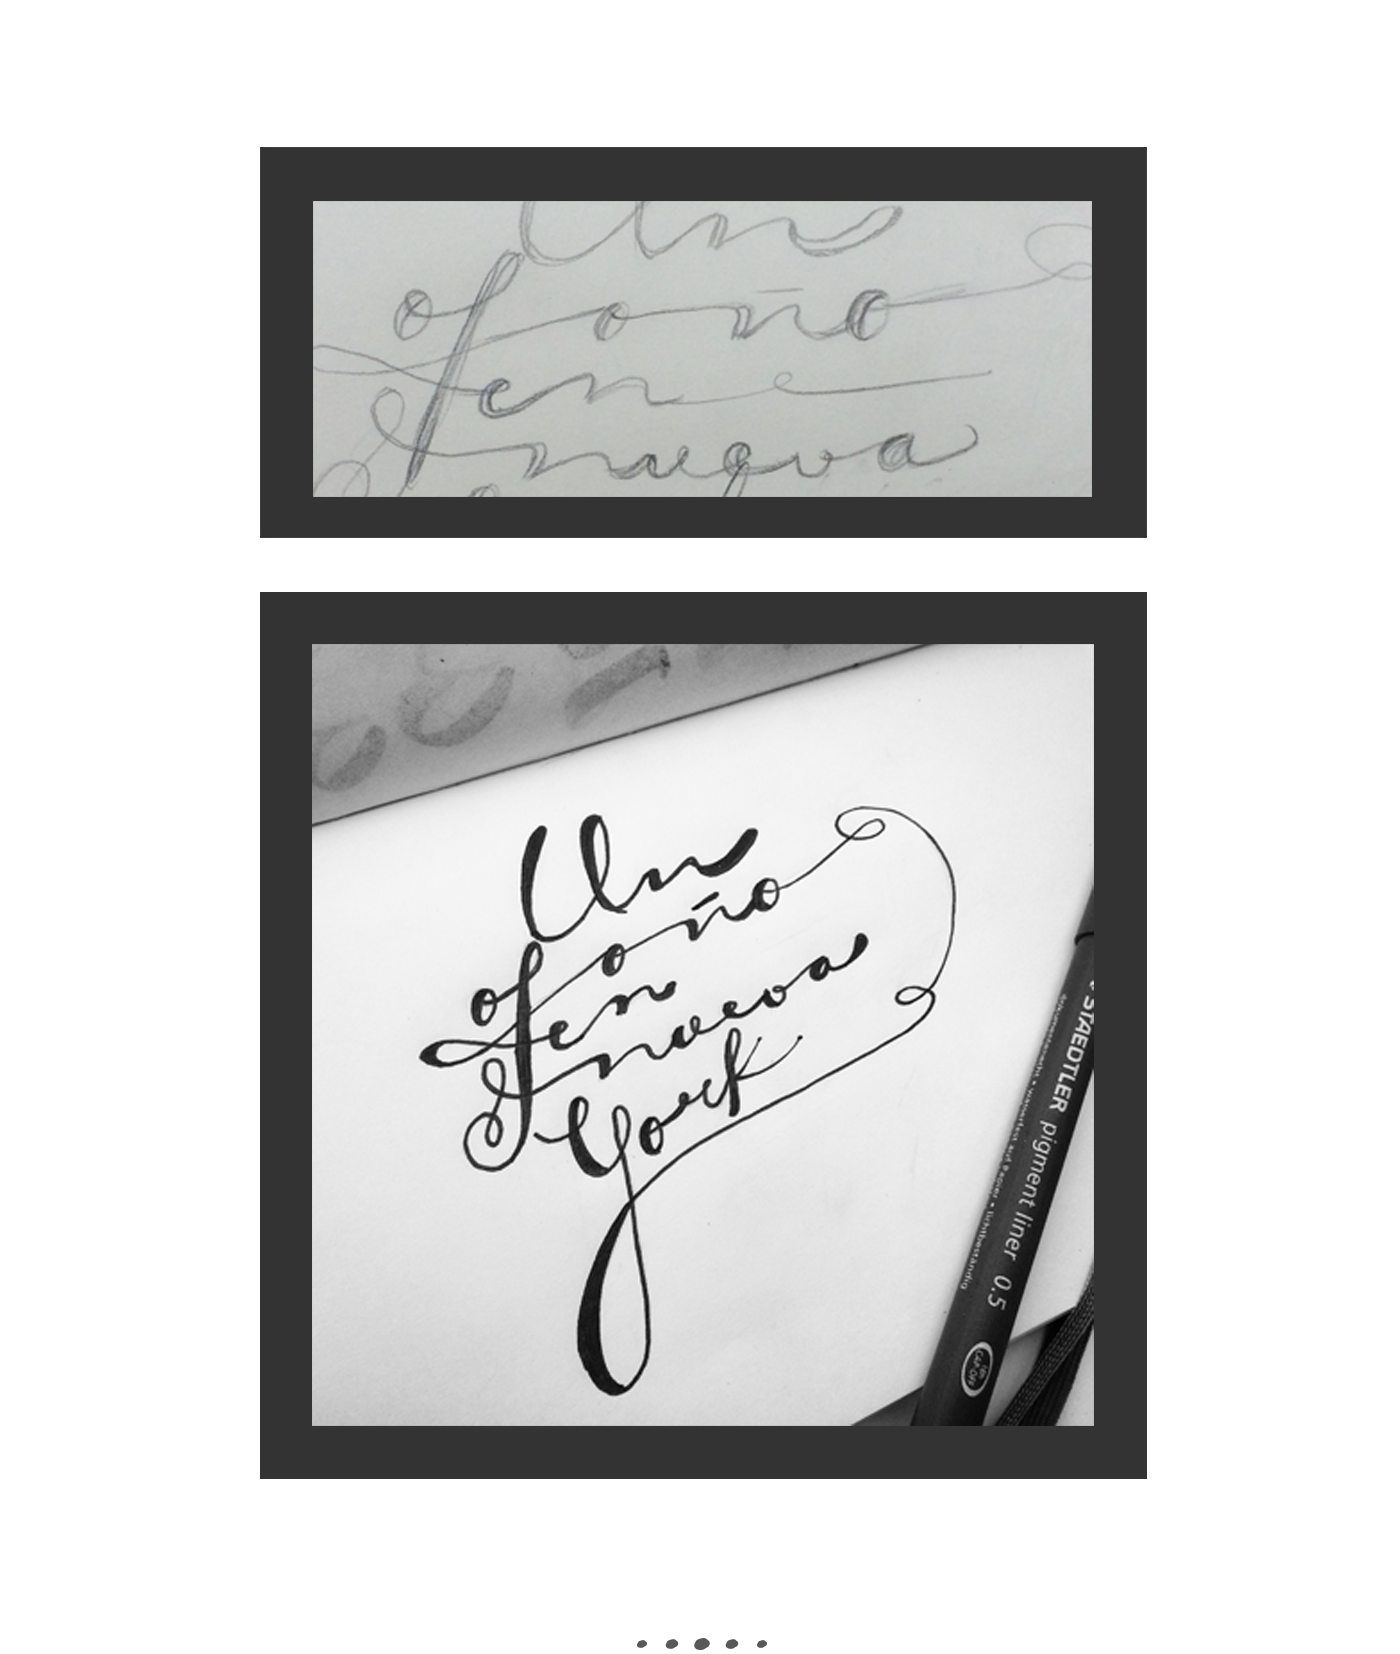 Un
otoño
en
nueva
Un
otoño
en
nueva
York
STAEDTLER pigment liner 0.5
CAP OFF